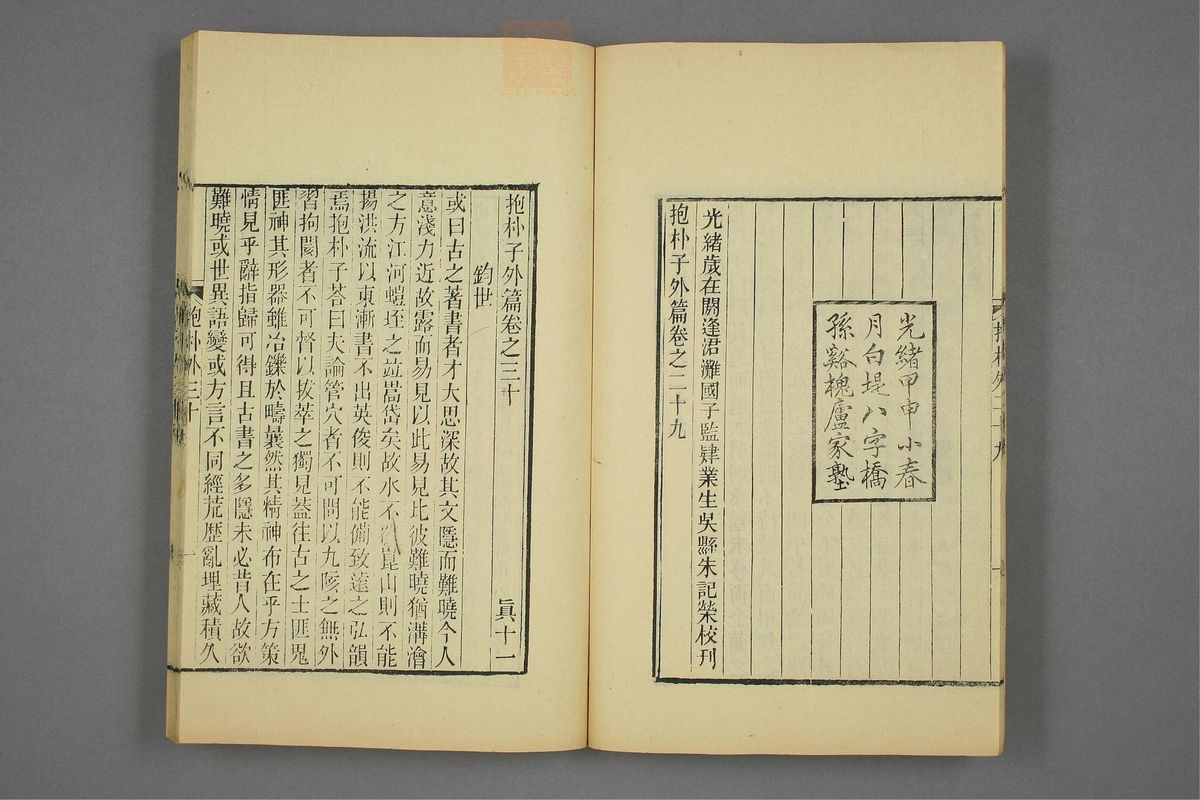 光緒甲申小春
月白堤八字橋
孫谿槐廬家塾
光緒歲在閼逢涒灘國子監肄業生吳縣朱記榮校刊
抱朴子外篇卷之二十九
抱朴子外篇卷之三十
眞十一
鈞世
或曰古之著書者才大思深故其文隱而難曉今人
意淺力近故露而易見以此易見比彼難曉猶溝澮
之方江河螘垤之竝嵩岱矣故水不發崑山則不能
揚洪流以東漸書不出英俊則不能備致遠之弘韻
焉抱朴子荅曰夫論管穴者不可問以九陔之無外
習拘閡者不可督以拔萃之獨見蓋往古之士匪鬼
匪神其形器雖冶鑠於疇曩然其精神布在乎方策
情見乎辭指歸可得且古書之多隱未必昔人故欲
難曉或世異語變或方言不同經荒歷亂埋藏積久
抱朴外三十
一